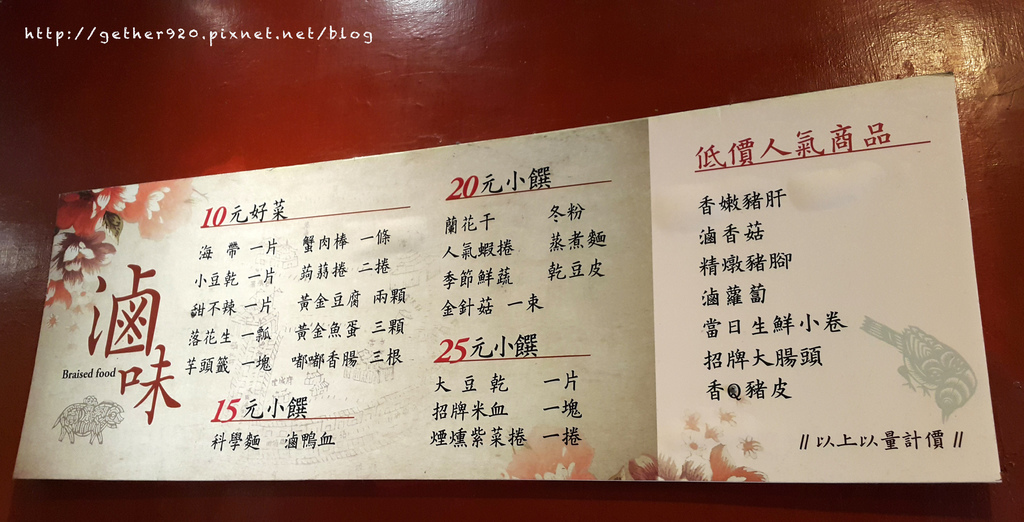 http://gether920.pixnet.net/blog
滷味
Braised food
10元好菜
海 帶 一片 蟹肉棒 一條
小豆乾 一片 蒟蒻捲 二捲
甜不辣 一片 黃金豆腐 兩顆
落花生 一瓢 黃金魚蛋 三顆
芋頭籤 一塊 嘟嘟香腸 三根
15元小饌
科學麵 滷鴨血
20元小饌
蘭花干 冬粉
人氣蝦捲 蒸煮麵
季節鮮蔬 乾豆皮
金針菇 一束
25元小饌
大豆乾 一片
招牌米血 一塊
煙燻紫菜捲 一捲
低價人氣商品
香嫩豬肝
滷香菇
精燉豬腳
滷蘿蔔
當日生鮮小卷
招牌大腸頭
香Q豬皮
// 以上以量計價 //